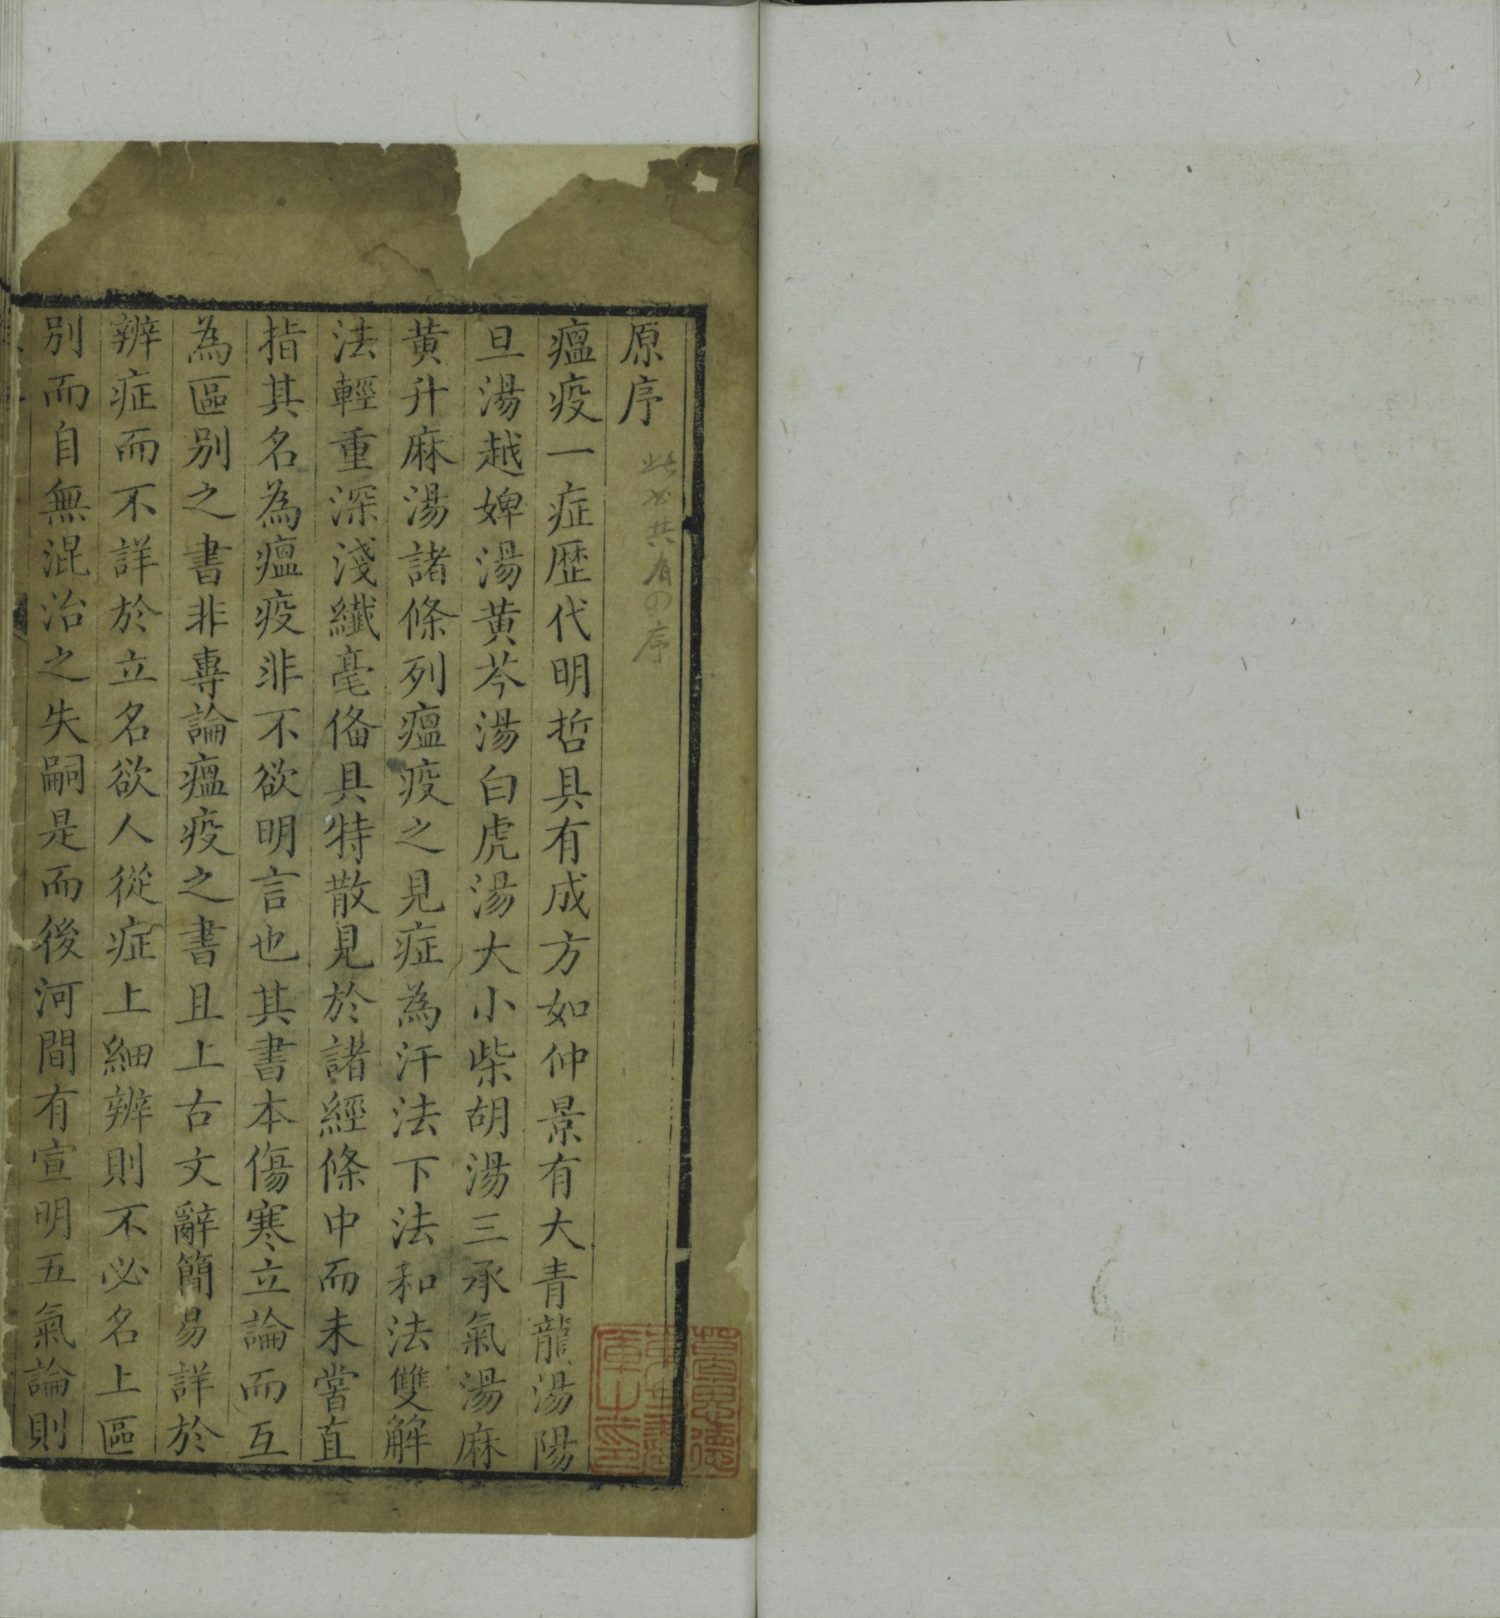 原序
此書共有の序
瘟疫一症歷代明哲具有成方如仲景有大青龍湯陽
旦湯越婢湯黄芩湯白虎湯大小柴胡湯三承氣湯麻
黄升麻湯諸條列瘟疫之見症為汗法下法和法雙解
法輕重深淺纎毫俻具特散見於諸經條中而未嘗直
指其名為瘟疫非不欲明言也其書本傷寒立論而互
為區别之書非專論瘟疫之書且上古文辭簡易詳於
辨症而不詳於立名欲人從症上細辨則不必名上區
别而自無混治之失嗣是而後河間有宣明五氣論則